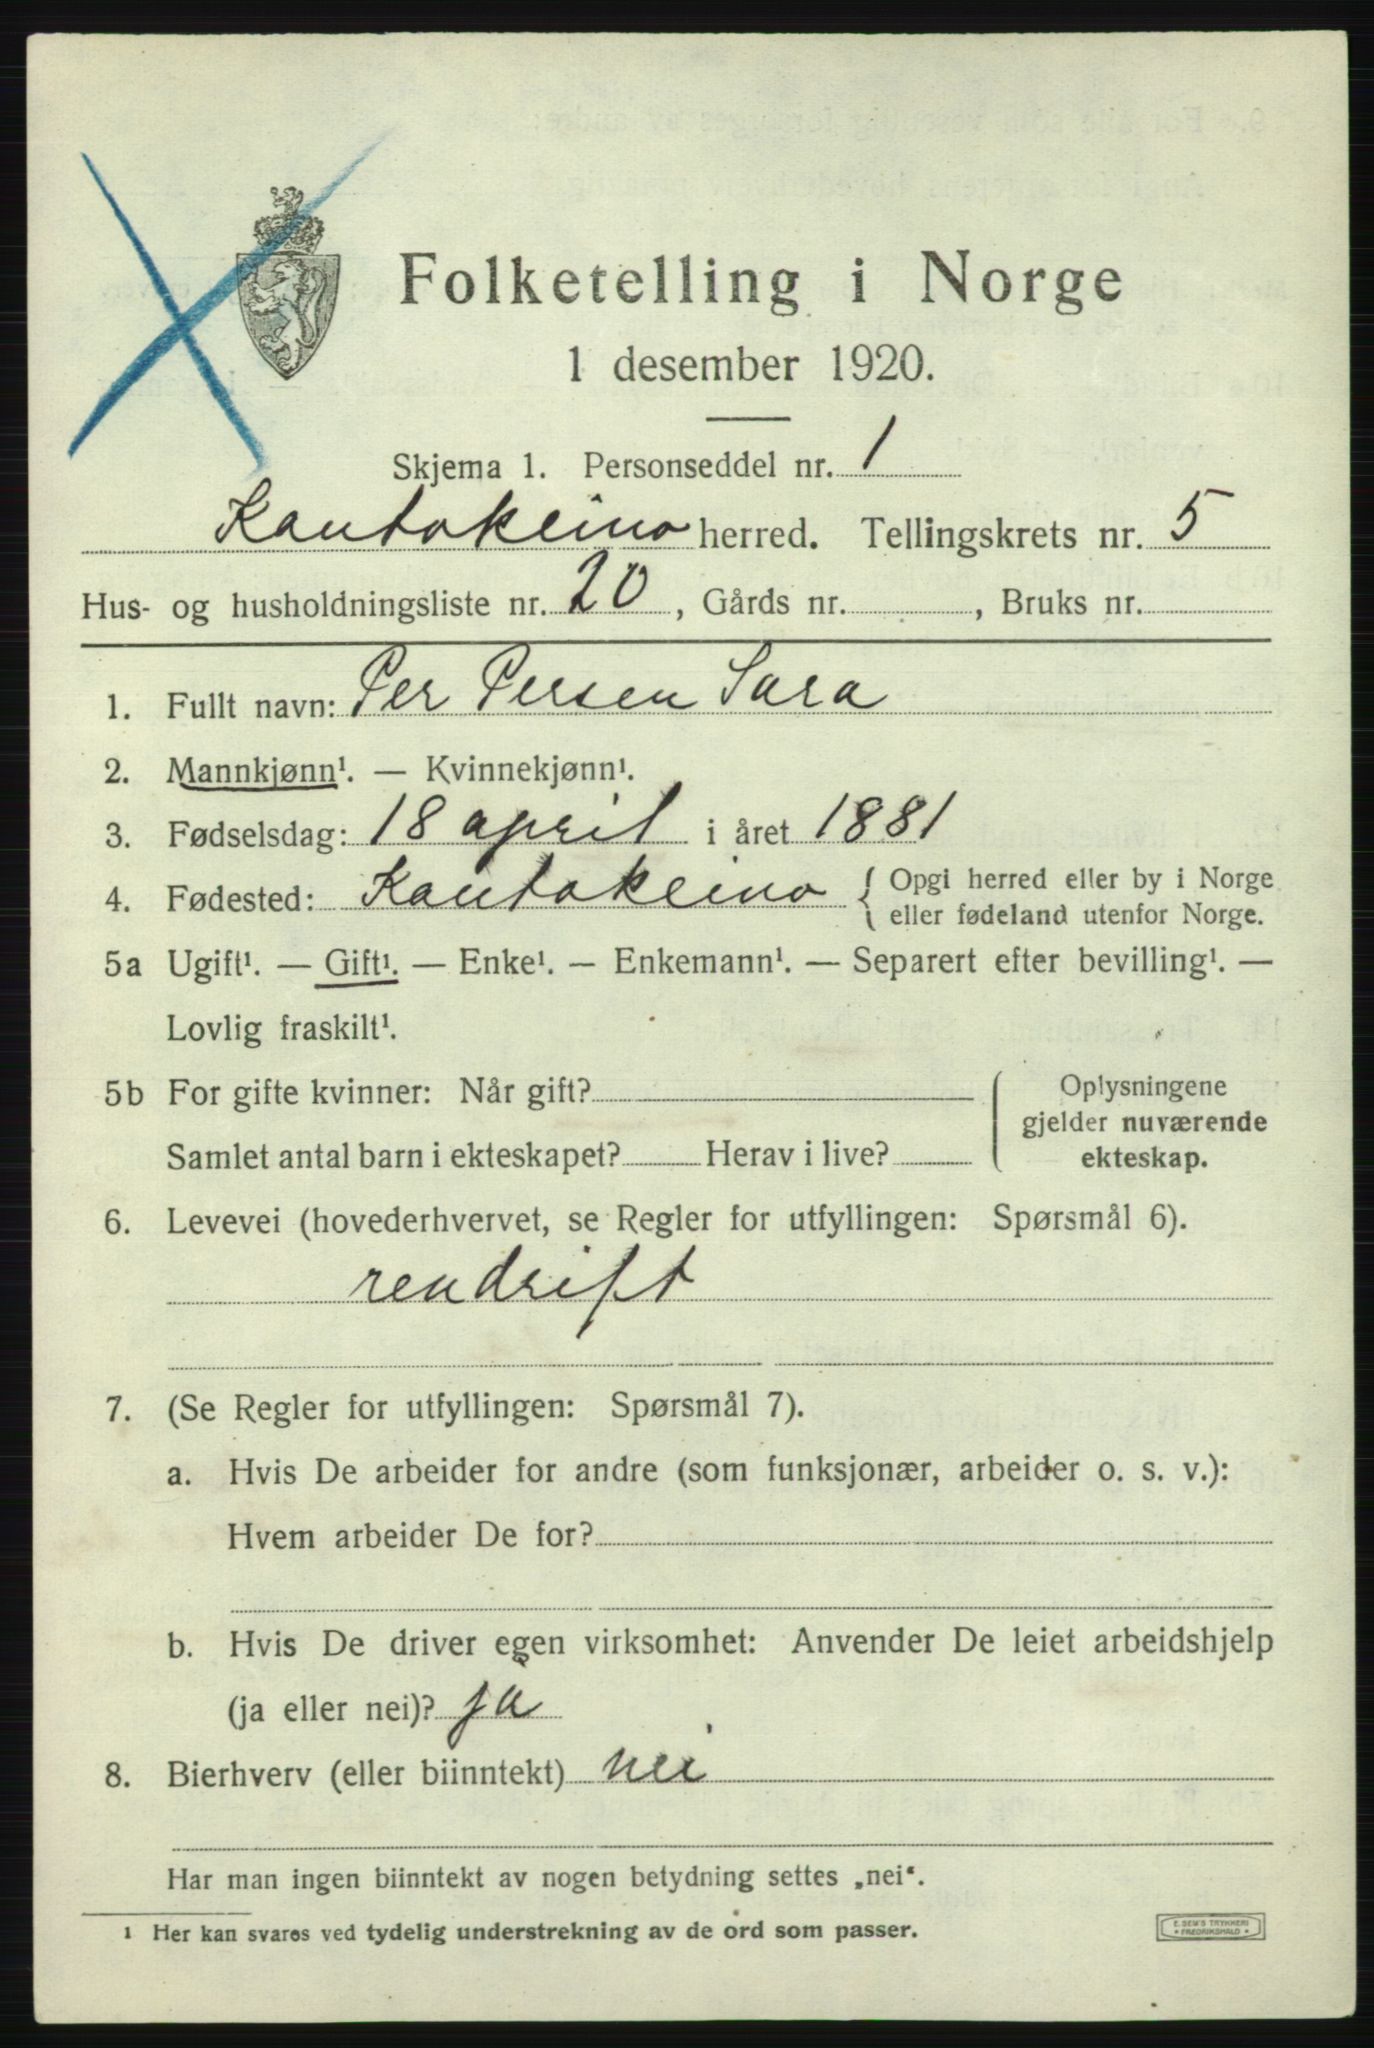 Folketelling i Norge
1 desember 1920.
Skjema 1. Personseddel nr. 1
Kautokeino herred. Tellingskrets nr. 5
Hus- og husholdningsliste nr. 20, Gårds nr. , Bruks nr.
1. Fullt navn: Per Persen Sara
2. Mannkjønn¹. — Kvinnekjønn¹.
3. Fødselsdag: 18 april i året 1881
4. Fødested: Kautokeino { Opgi herred eller by i Norge
eller fødeland utenfor Norge.
5a Ugift¹. — Gift¹. — Enke¹. — Enkemann¹. — Separert efter bevilling¹. —
Lovlig fraskilt¹.
5b For gifte kvinner: Når gift?
Samlet antal barn i ekteskapet? Herav i live?
Oplysningene
gjelder nuværende
ekteskap.
6. Levevei (hovederhvervet, se Regler for utfyllingen: Spørsmål 6).
rendrift
7. (Se Regler for utfyllingen: Spørsmål 7).
a. Hvis De arbeider for andre (som funksjonær, arbeider o. s. v.):
Hvem arbeider De for?
b. Hvis De driver egen virksomhet: Anvender De leiet arbeidshjelp
(ja eller nei)? ja
8. Bierhverv (eller biinntekt) nei
Har man ingen biinntekt av nogen betydning settes „nei“.
¹ Her kan svares ved tydelig understrekning av de ord som passer.
E. SEM'S TRYKKERI
* FREDRIKSHALD *